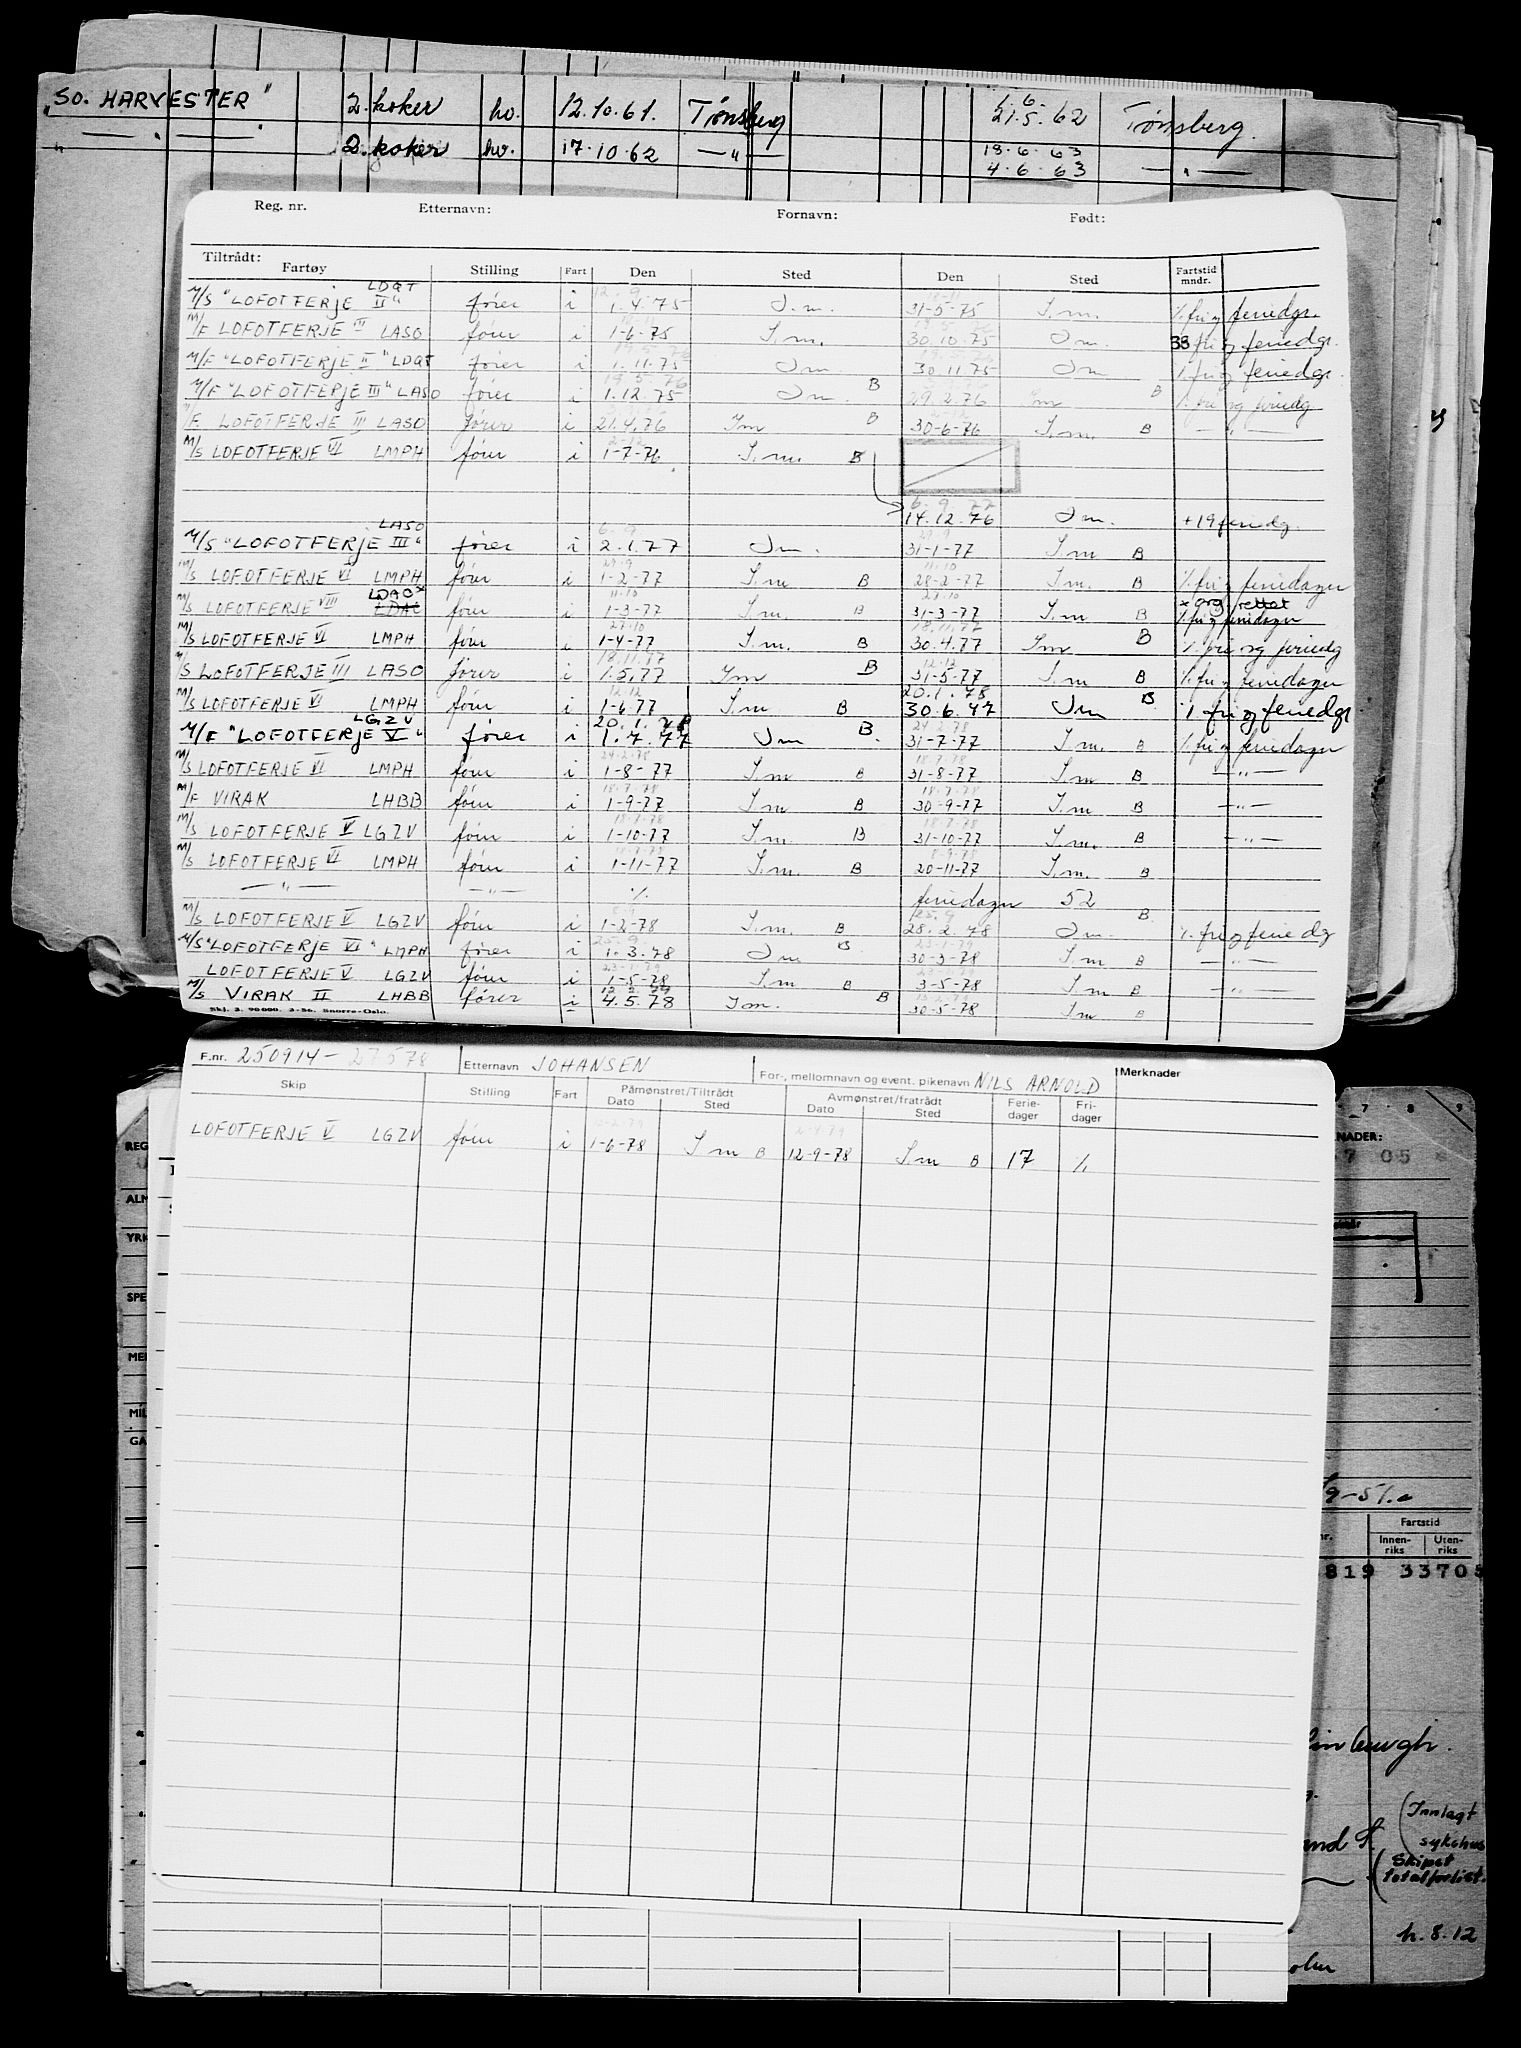 "SO. HARVESTER" 2. koker hv. 12.10.61. Tønsberg 1.6. 21.5.62 Tønsberg.
— " — 2. koker hv. 17.10.62 — " — 18.6.63
4.6.63 — " —
Reg. nr. Etternavn: Fornavn: Født:
Tiltrådt:
Fartøy Stilling Fart Den Sted Den Sted Fartstid mndr.
LDQT
M/S "LOFOTFERJE II" fører i 1.4.75 I.m. 31-5-75 I.m. % fri og feriedgr.
M/F LOFOTFERJE III LASO fører i 1-6-75 I.m. 30.10.75 I.m. 38 fri og feriedgr.
M/F "LOFOTFERJE II" LDQT fører i 1.11.75 I.m. 30.11.75 I.m. % fri og feriedgr.
M/F "LOFOTFERJE III" LASO fører i 1.12.75 I.m. B 29.2.76 I.m B % fri og feriedg
M/F LOFOTFERJE III LASO fører i 21.4.76 I.m B 30-6-76 I.m. B — " —
M/S LOFOTFERJE VI LMPH fører i 1-7-76 I.m. B
6.9.77
14.12.76 I.m. +19 feriedg.
LASO 6.9 29.9
M/S "LOFOTFERJE III" fører i 2.1.77 I.m. 31-1-77 I.m B
29.9 11.10
M/S LOFOTFERJE VI LMPH fører i 1-2-77 I.m B 28-2-77 I.m. B % fri og feriedager
LDAC x 11.10 27.10 x org. rettet
M/S LOFOTFERJE VIII LDAC fører i 1-3-77 I.m. B 31-3-77 I.m B % fri og feriedager
27.10 18.11.77
M/S LOFOTFERJE VI LMPH fører i 1-4-77 I.m. B 30.4.77 I.m B % fri og feriedg
18.11.77 12.12
M/S LOFOTFERJE III LASO fører i 1.5.77 I.m B 31-5-77 I.m B % fri og feriedager
12.12 20.1.78
M/S LOFOTFERJE VI LMPH fører i 1-6-77 I.m B 30.6.77 I.m B % fri og feriedgr
LGZV 20.1.78 24.2.78
M/F "LOFOTFERJE V" fører i 1.7.77 I.m B. 31-7-77 I.m. B % fri og feriedager
24.2.78 18.7.78
M/S LOFOTFERJE VI LMPH fører i 1-8-77 I.m B 31-8-77 I.m B — " —
18.7.78 18.7.78
M/F VIRAK LHBB fører i 1-9-77 I.m B 30-9-77 I.m B — " —
18.7.78 18.7.78
M/S LOFOTFERJE V LGZV fører i 1-10-77 I.m B 31-10-77 I.m. B — " —
18.7.78 8.9.78
M/S LOFOTFERJE VI LMPH fører i 1-11-77 I.m. B 20-11-77 I.m. B
— " — — " — % feriedager 52
25.9
M/S LOFOTFERJE V LGZV fører i 1-2-78 I.m. B 28.2.78 I.m. B % fri og feriedg
25.9. 23-1-79
M/S "LOFOTFERJE VI" LMPH fører i 1.3.78 I.m B 30-3-78 I.m B — " —
23-1-79 23-1-79
LOFOTFERJE V LGZV fører i 1-5-78 I.m B 3-5-78 I.m B — " —
12.2.79 12.2.79
M/S VIRAK II LHBB fører i 4.5.78 I.m. B 30-5-78 I.m B
Skj. 3. 90000. 3-56. Snorre-Oslo.
F.nr. 250914-27578 Etternavn JOHANSEN For-, mellomnavn og event. pikenavn NILS ARNOLD Merknader
Skip Stilling Fart Påmønstret/Tiltrådt Avmønstret/fratrådt Ferie-dager Fri-dager
Dato Sted Dato Sted
12-2-79 2-4-79
LOFOTFERJE V LGZV fører i 1-6-78 I m B 12-9-78 I m B 17 %
REG
ALM
YRK
SPE
MIL
GA
7 8 9
NADER:
7 05
/9-51.
Fartstid
nr. Innen-riks Uten-riks
819 33705
inburgh.
(Innlagt
sykehus
(Skipet
totalforlist.
h. 8.12
olm